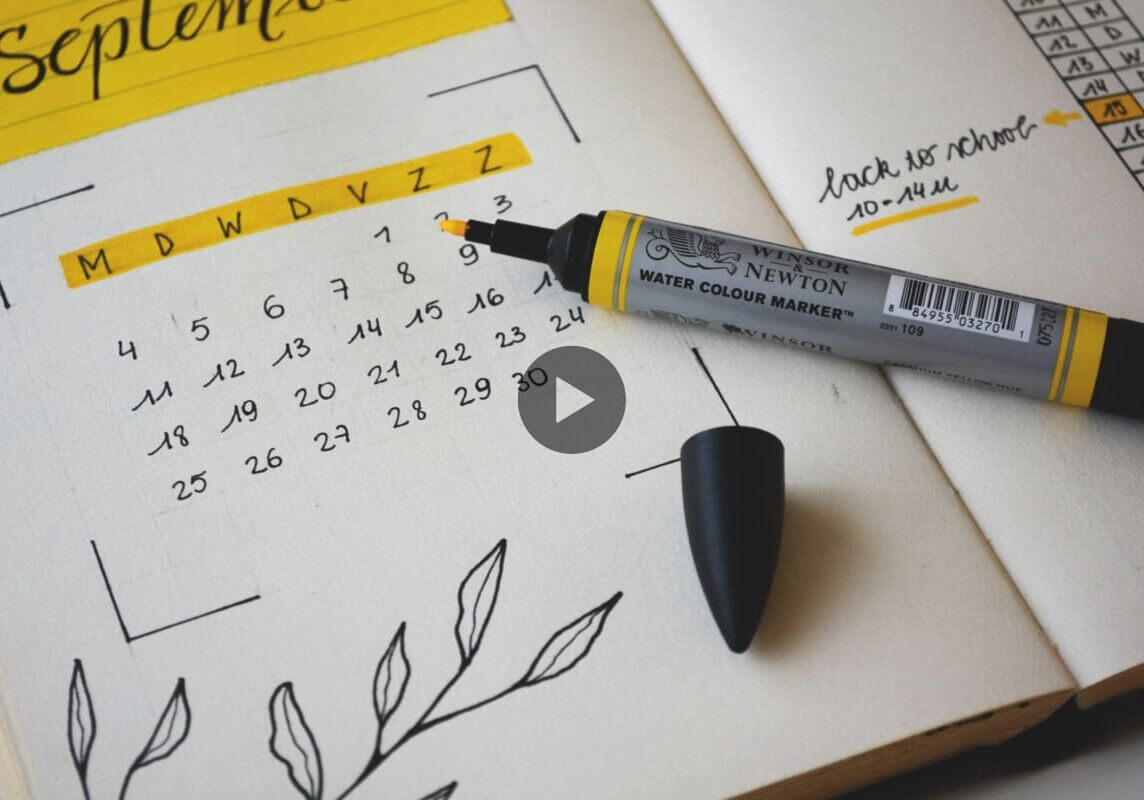 M D W D V Z Z
1 2 3
4 5 6 7 8 9
11 12 13 14 15 16
18 19 20 21 22 23 24
25 26 27 28 29 30
11 M
12 D
13 W
14
15
16
back to school
10-14u
WINSOR
&
NEWTON
WATER COLOUR MARKER™
8 84955 03270 1
0201 109
WINSOR